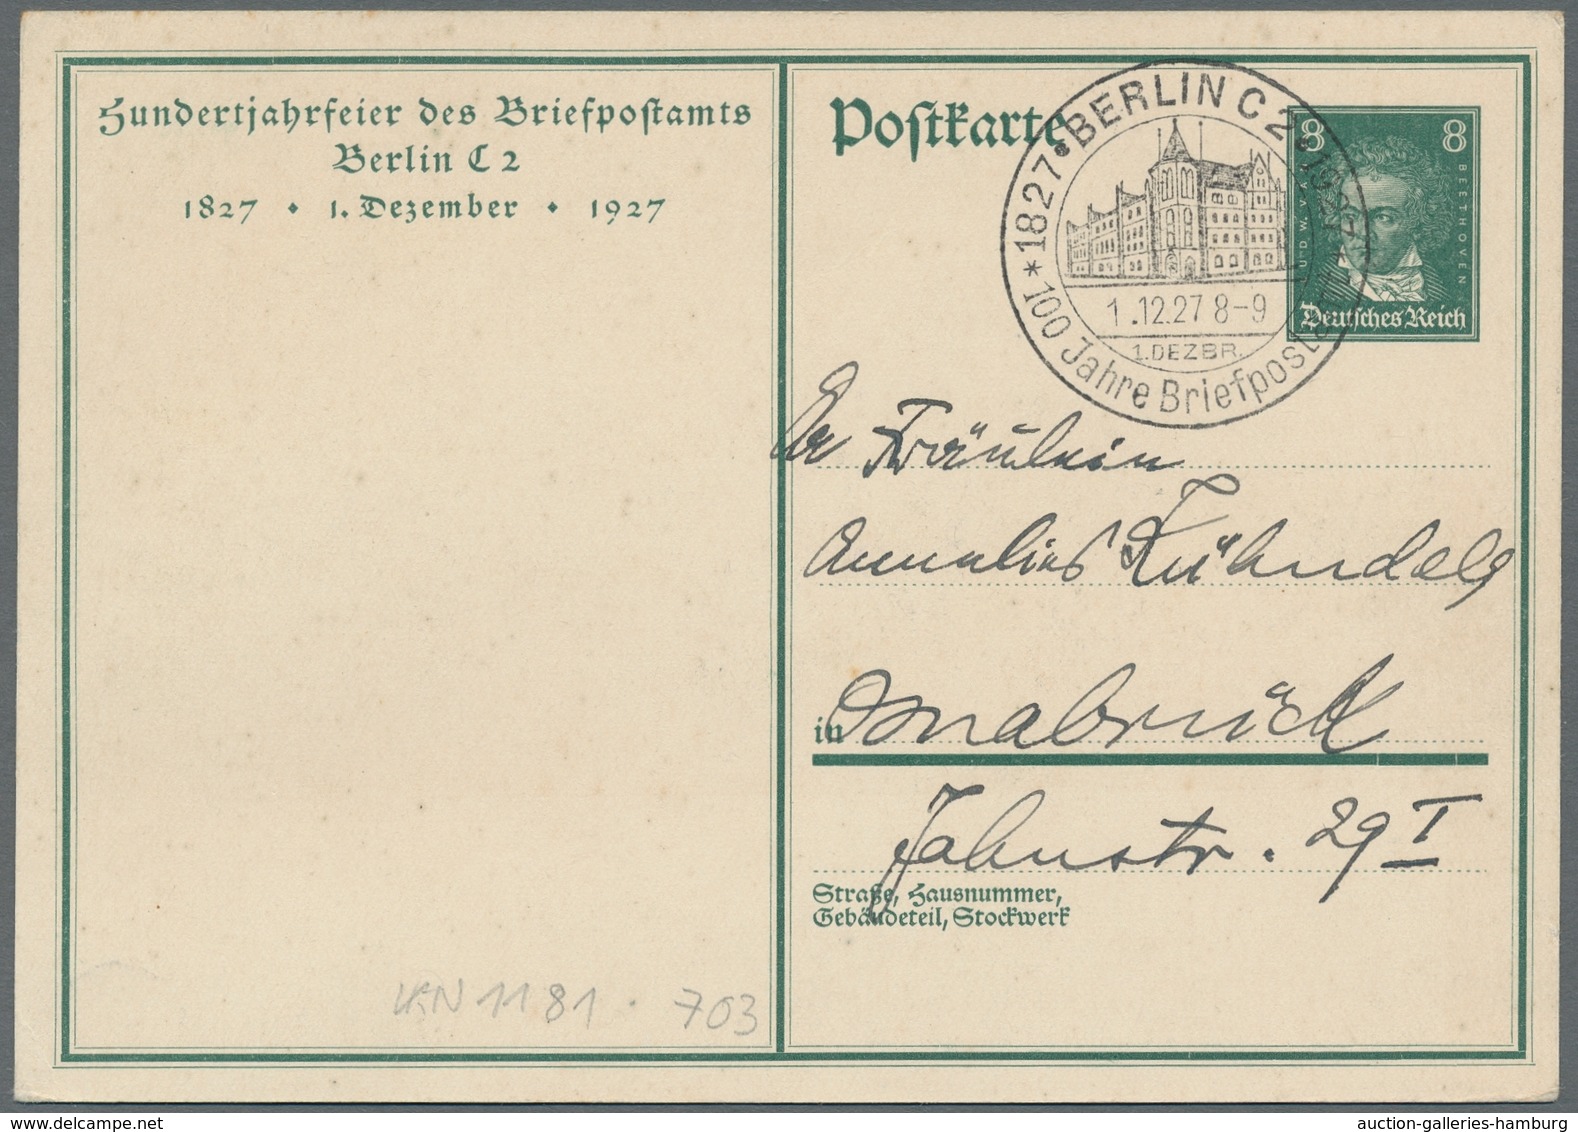 Hundertjahrfeier des Briefpostamts
Berlin C 2
1827 • 1. Dezember • 1927
Postkarte
* 1827 • BERLIN C 2 • 1927 *
1.12.27 8-9
1. DEZBR.
100 Jahre Briefpostamt
8 8
LUDW. V. BEETHOVEN
Deutsches Reich
Fräulein
Annelies
in Osnabrück
Jahnstr. 29 I
Straße, Hausnummer,
Gebäudeteil, Stockwerk
1181 • 703
auction-galleries-hamburg